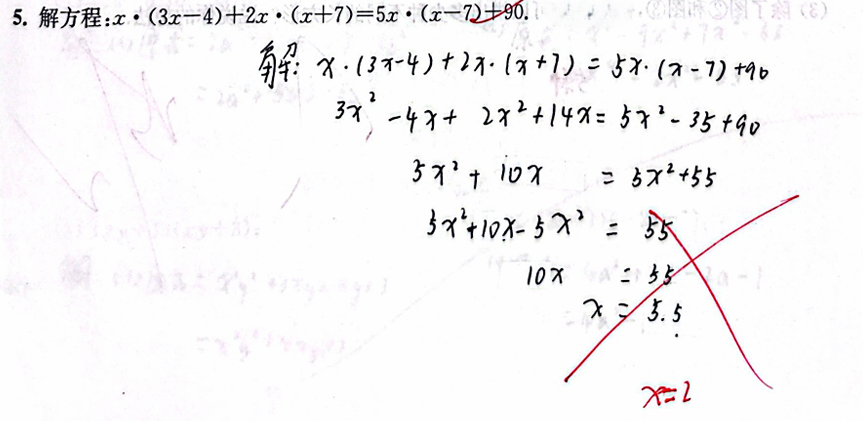 5. 解方程:x·(3x-4)+2x·(x+7)=5x·(x-7)+90.
解: x·(3x-4)+2x·(x+7)=5x·(x-7)+90
3x²-4x+2x²+14x=5x²-35+90
5x²+10x=5x²+55
5x²+10x-5x²=55
10x=55
x=5.5
x=2